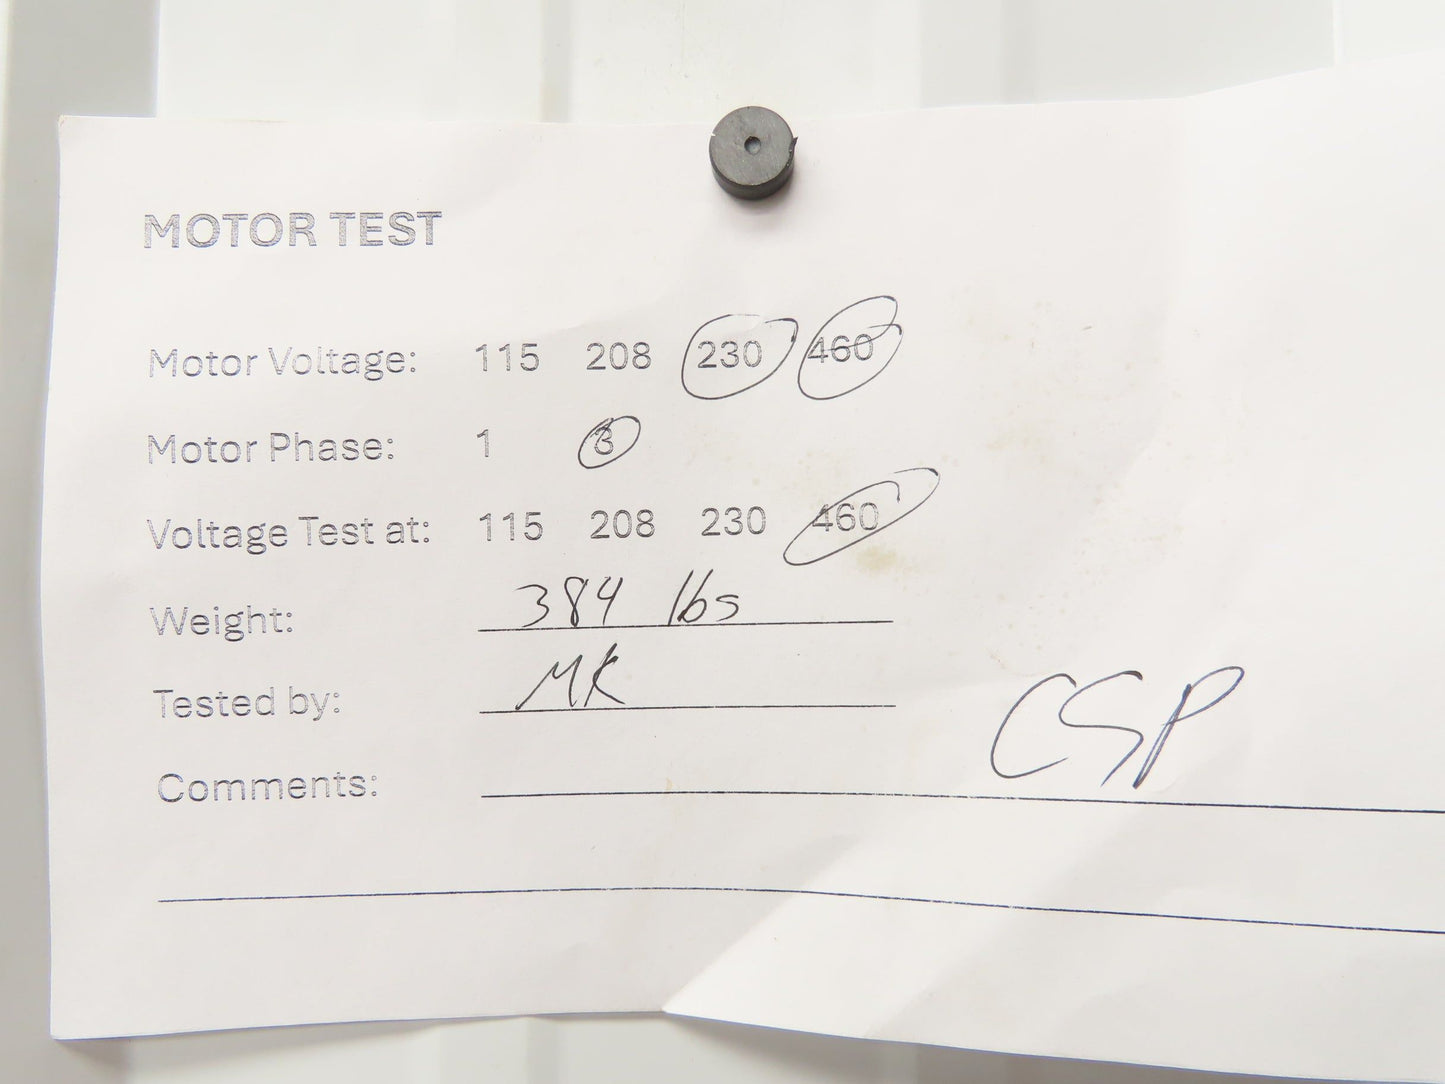 MOTOR TEST
Motor Voltage: 115 208 230 460
Motor Phase: 1 3
Voltage Test at: 115 208 230 460
Weight: 384 lbs
Tested by: MK
Comments: CSP